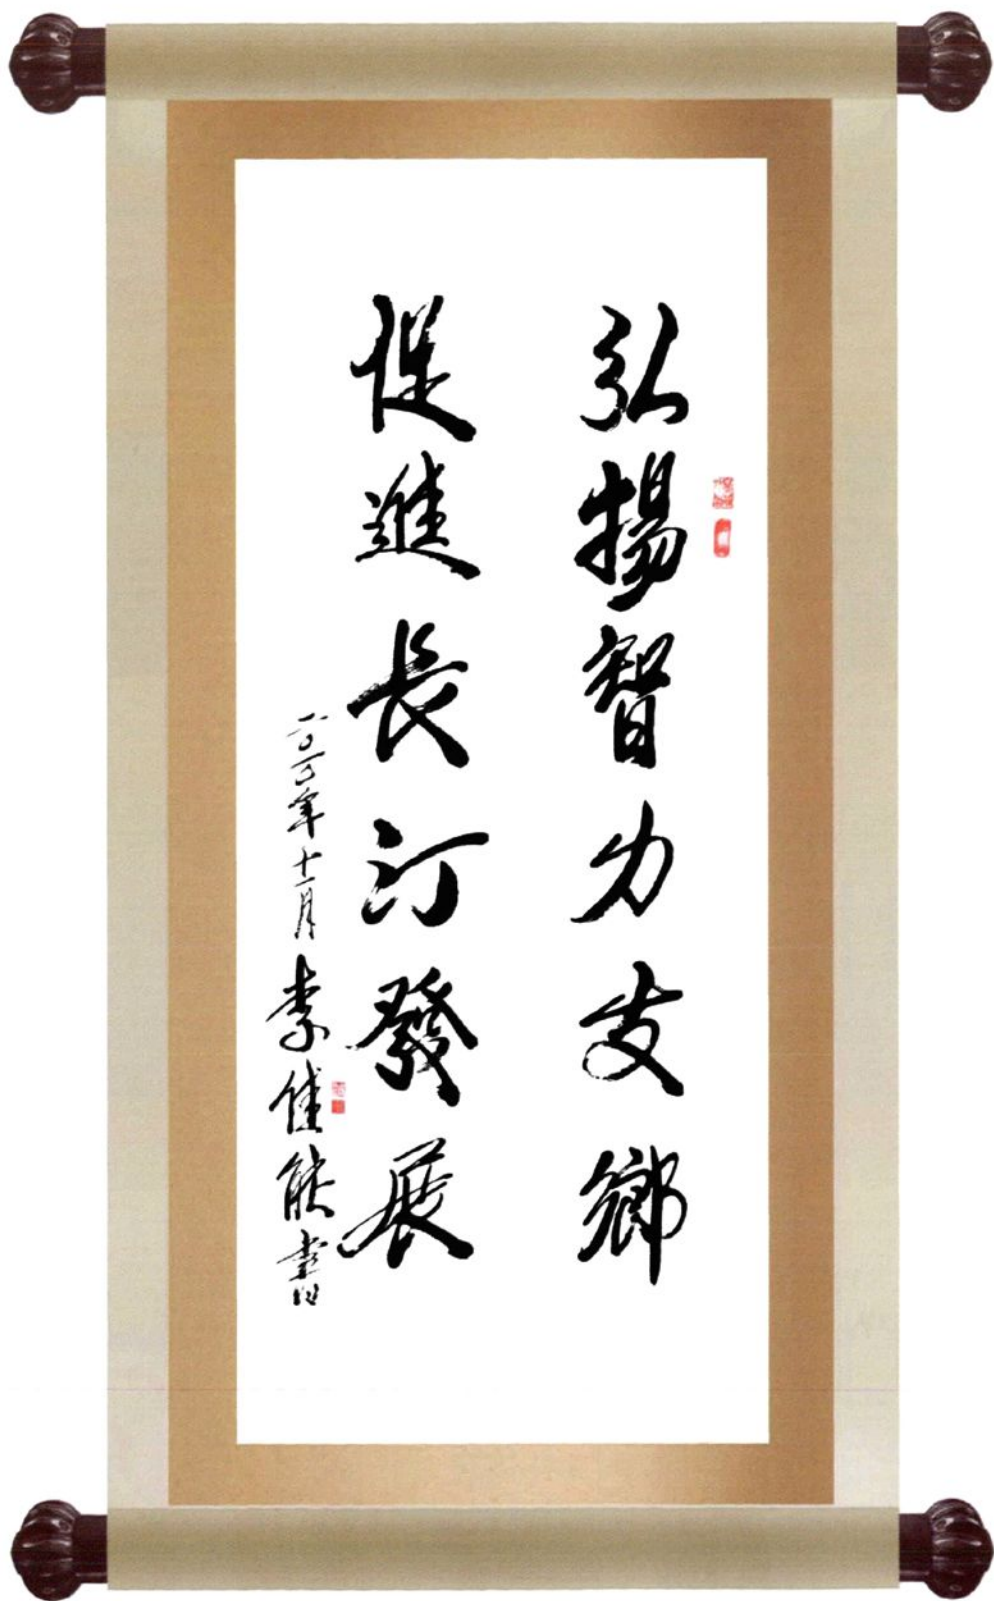 弘揚智力支鄉
促進長汀發展
二〇一〇年十一月李佳能書